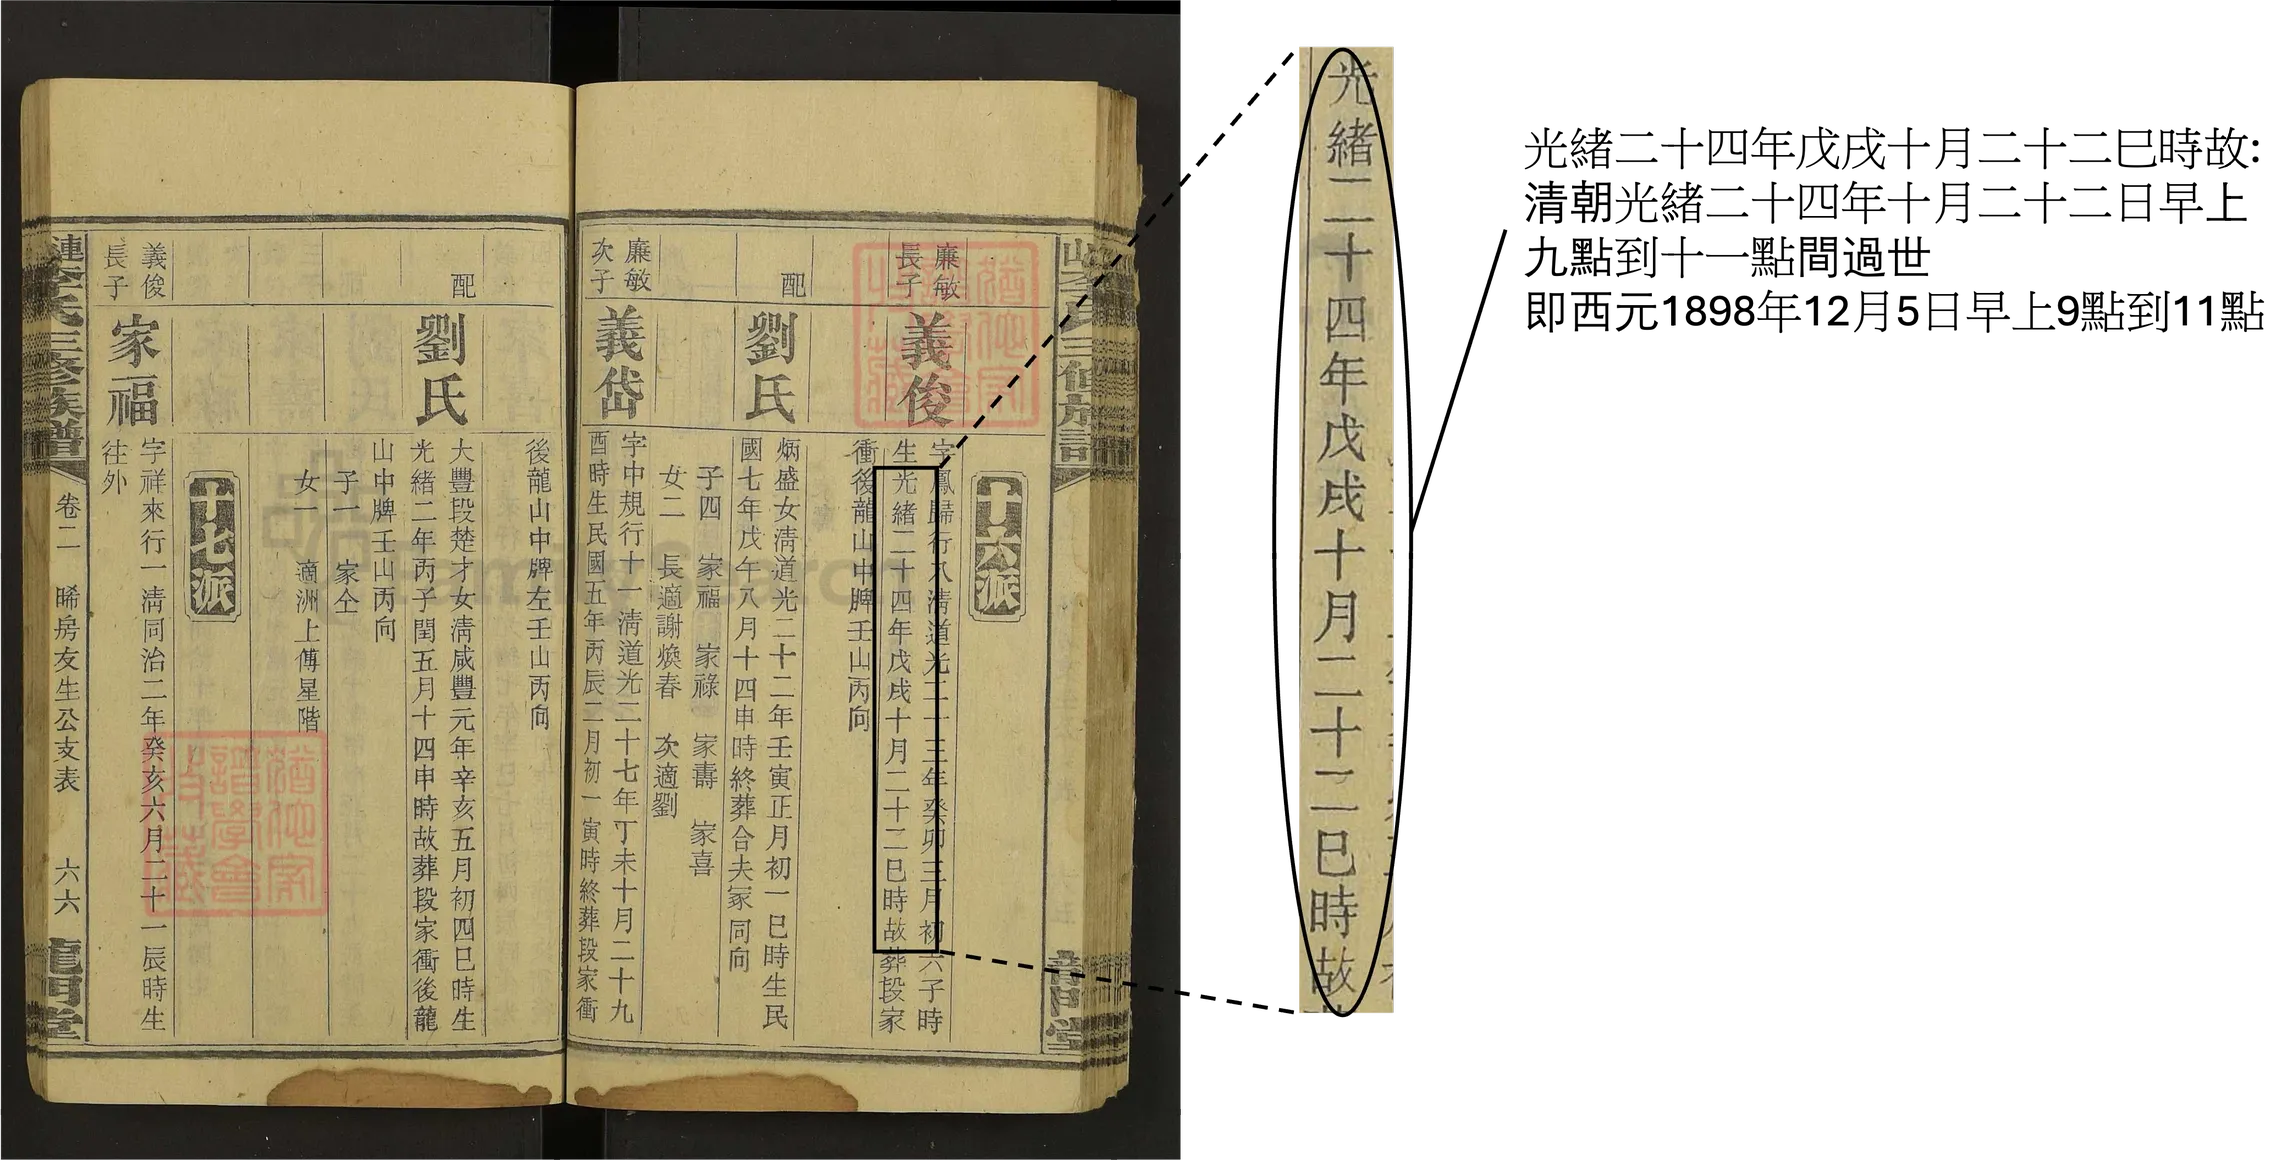 十六派
廉敏
長子
義俊
字鳳歸行八清道光二十三年癸卯三月初六子時
生光緒二十四年戊戌十月二十二巳時故葬段家
衝後龍山中牌壬山丙向
配
劉氏
炳盛女清道光二十二年壬寅正月初一巳時生民
國七年戊午八月十四申時終葬合夫冢同向
子四 家福 家祿 家壽 家喜
女二 長適謝煥春 次適劉
廉敏
次子
義岱
字中規行十一清道光二十七年丁未十月二十九
酉時生民國五年丙辰二月初一寅時終葬段家衝
後龍山中牌左壬山丙向
配
劉氏
大豐段楚才女清咸豐元年辛亥五月初四巳時生
光緒二年丙子閏五月十四申時故葬段家衝後龍
山中牌壬山丙向
子一 家仝
女一 適洲上傅星階
十七派
義俊
長子
家福
字祥來行一清同治二年癸亥六月二十一辰時生
往外
漣李氏三修族譜
卷二 晞房友生公支表 六六
龍門堂
FamilySearch
光緒二十四年戊戌十月二十二巳時故
光緒二十四年戊戌十月二十二巳時故:
清朝光緒二十四年十月二十二日早上
九點到十一點間過世
即西元1898年12月5日早上9點到11點